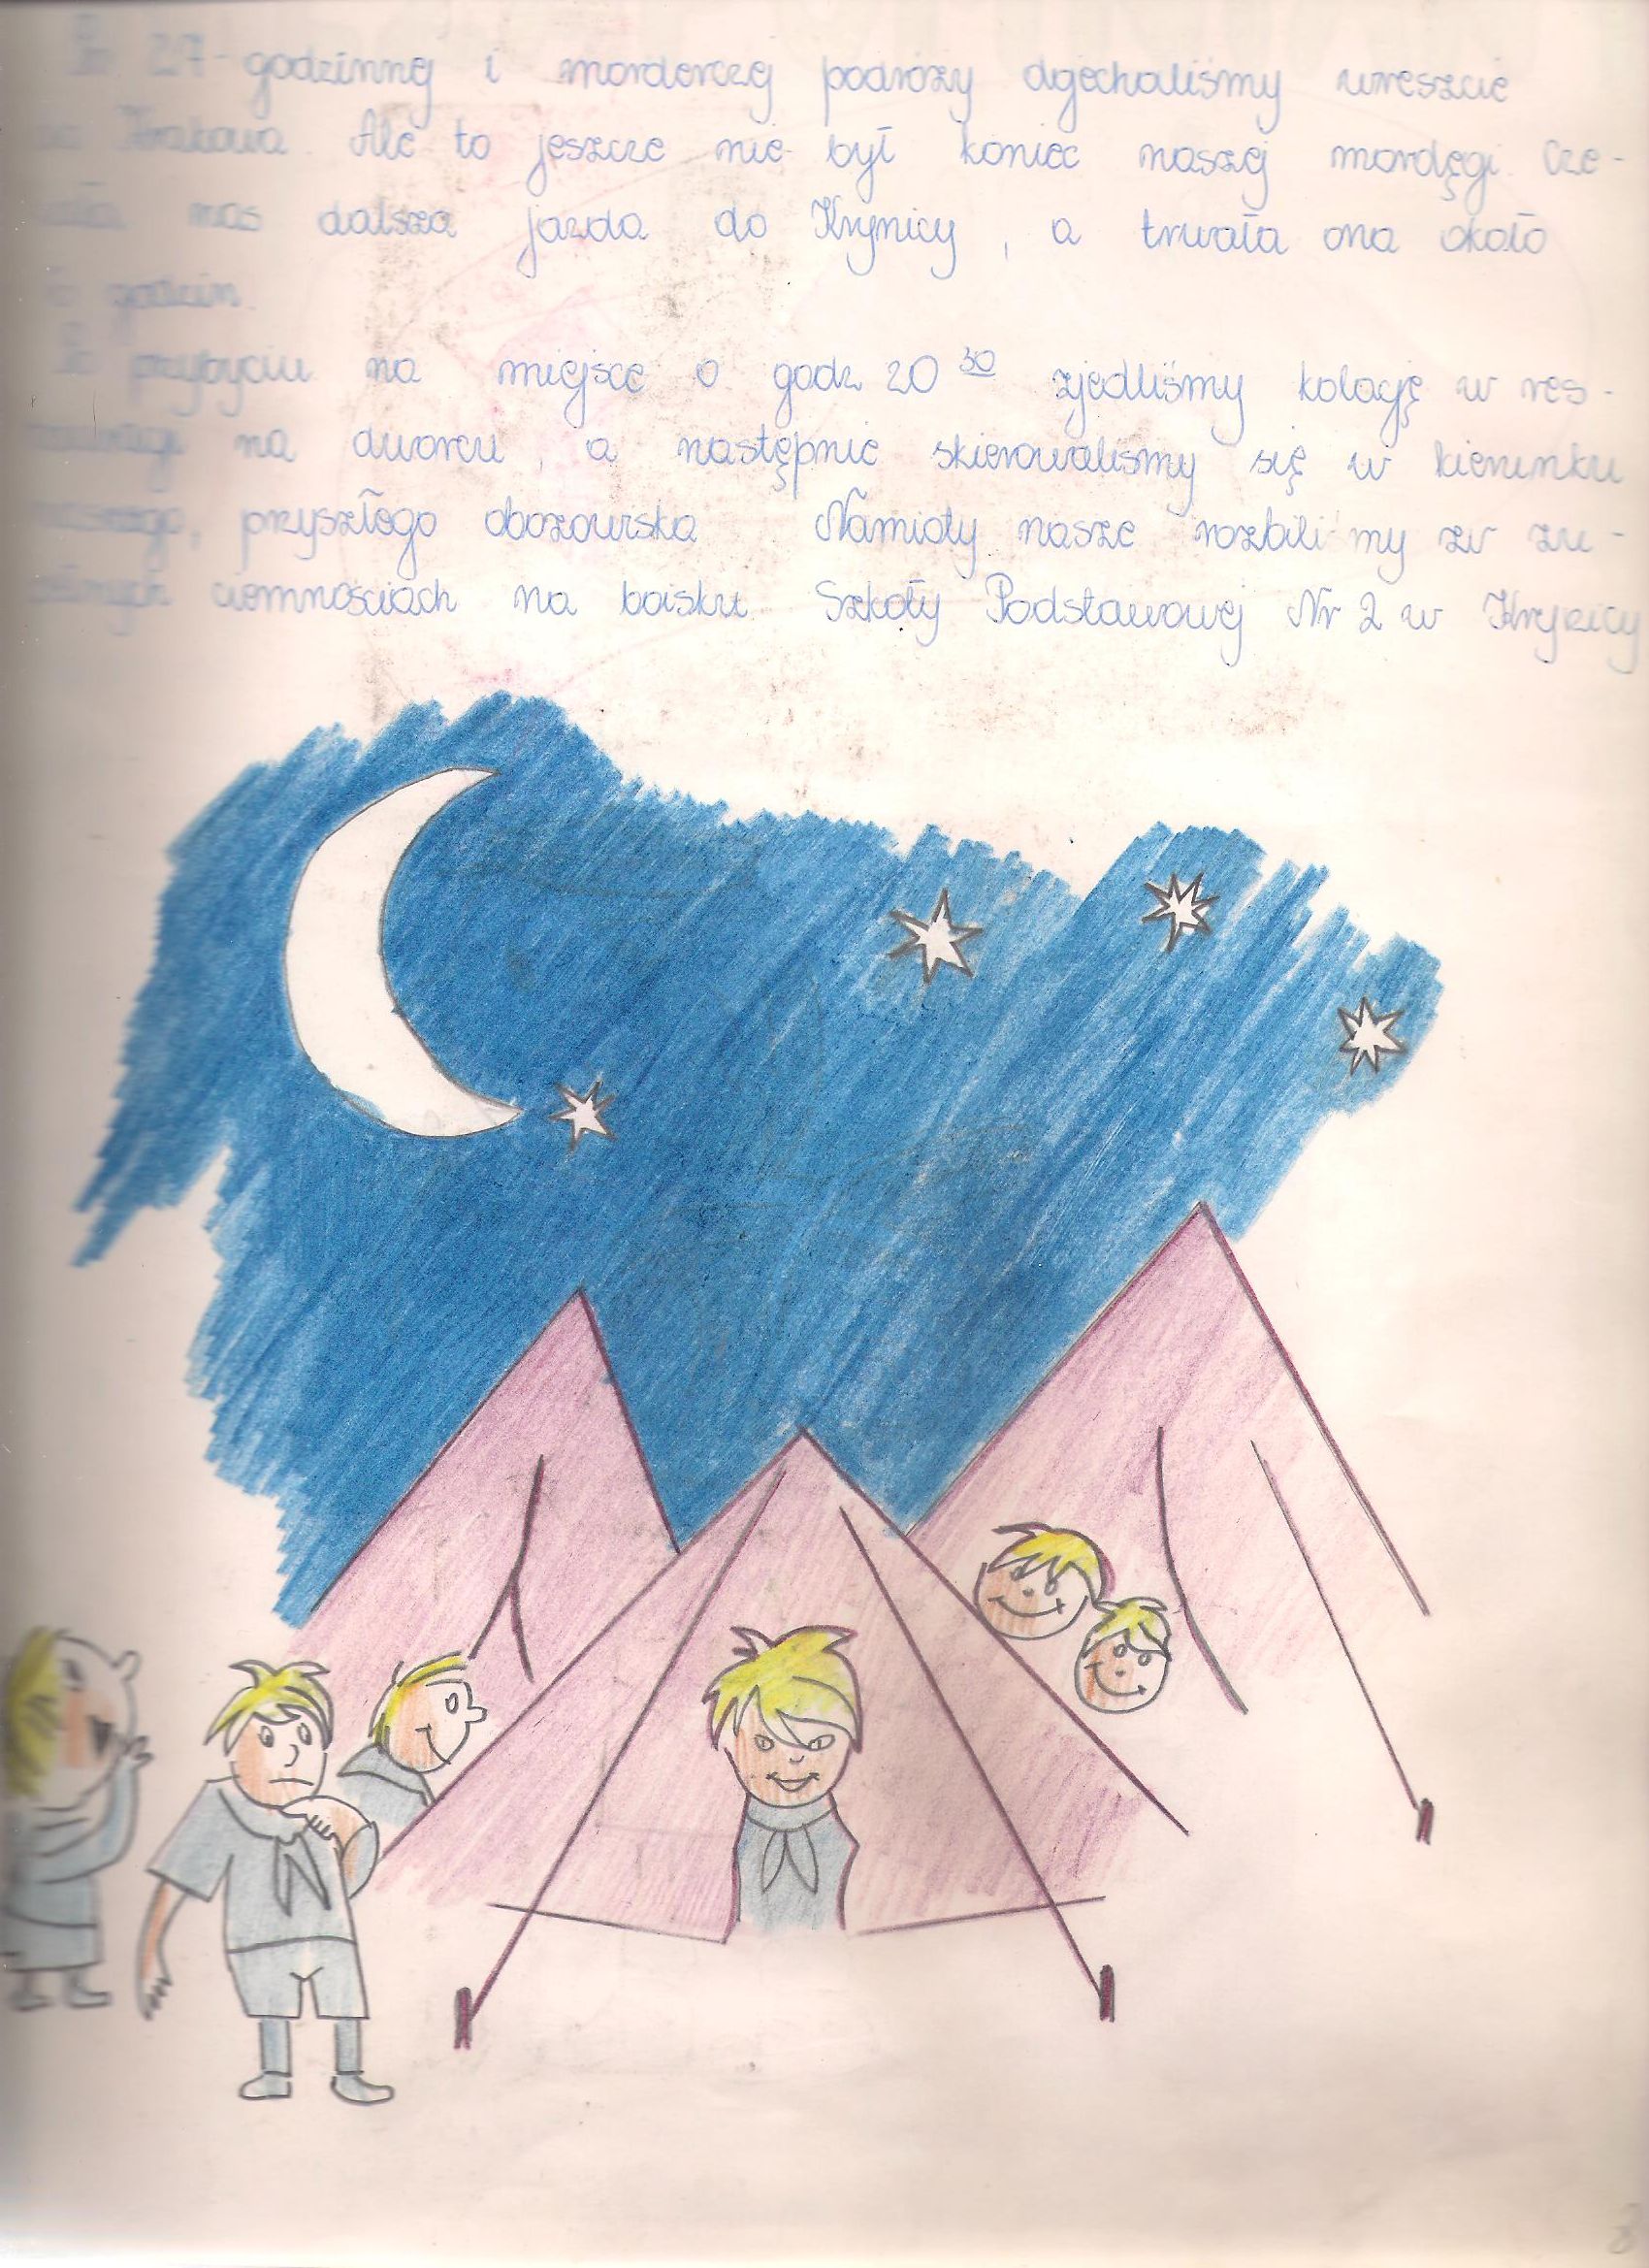 Po 27-godzinnej i morderczej podróży dojechaliśmy wreszcie
do Krakowa. Ale to jeszcze nie był koniec naszej mordęgi. Cze-
kała nas dalsza jazda do Krynicy, a trwała ona około
6 godzin.
Po przybyciu na miejsce o godz. 20 30 zjedliśmy kolację w res-
tauracji na dworcu, a następnie skierowaliśmy się w kierunku
naszego, przyszłego obozowiska. Namioty nasze rozbiliśmy w zu-
pełnych ciemnościach na boisku Szkoły Podstawowej Nr 2 w Krynicy
8